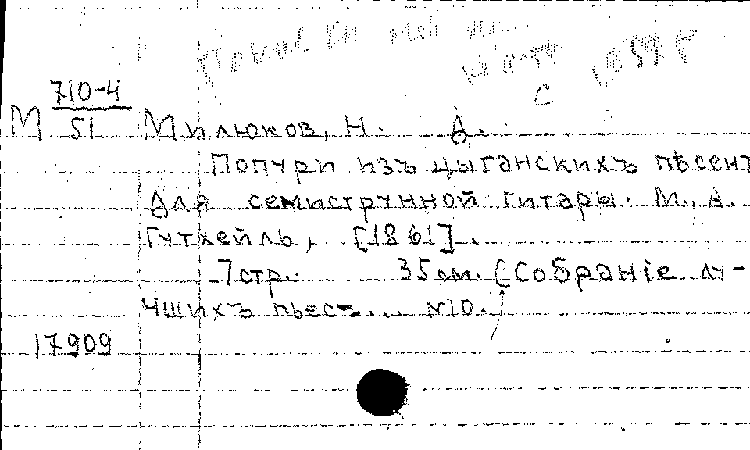 710-4
М 51 Милюков, Н. А.
Попури изъ цыганскихъ пѣсенъ
для семиструнной гитары. М., А.
Гутхейль, [1861].
7 стр. 35 см. (Собраніе лу-
чшихъ пьесъ... №10.
17909